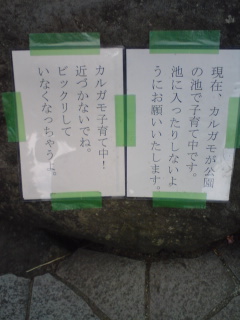 現在、カルガモが公園
の池で子育て中です。
池に入ったりしないよ
うにお願いいたします。
カルガモ子育て中！
近づかないでね。
ビックリして
いなくなっちゃうよ。